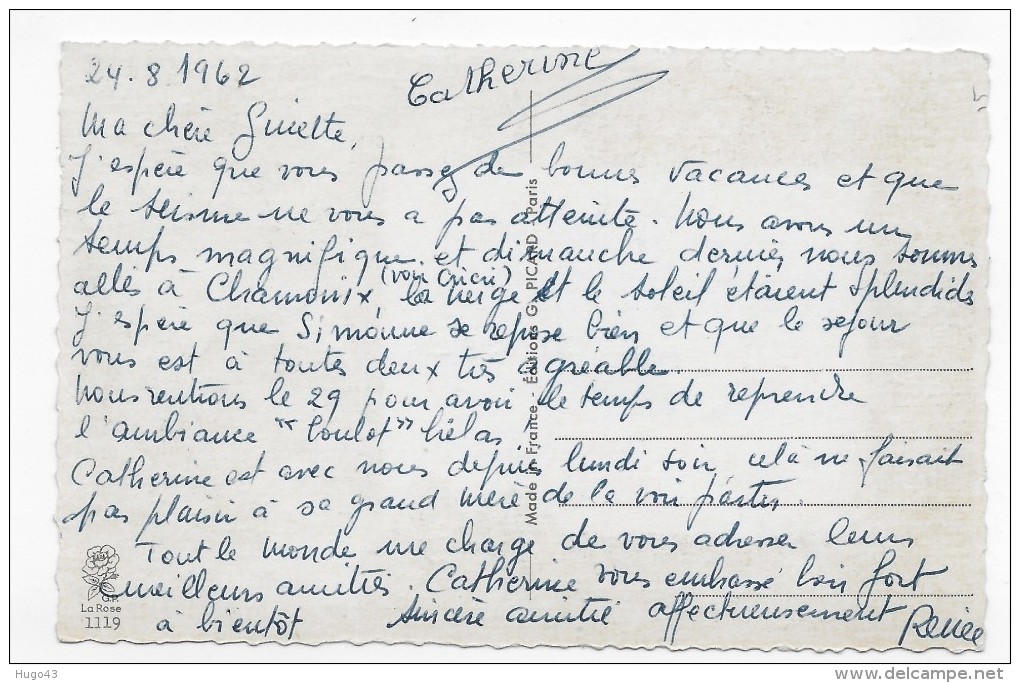 24.8.1962
Catherine
Ma chère Ginette,
J'espère que vous passez de bonnes vacances et que
le seisme ne vous a pas atteinte. Nous avons un
temps magnifique et dimanche dernier nous sommes
allés à Chamonix (voir Cricri) la neige et le soleil étaient splendides
J'espère que Simonne se repose bien et que le sejour
vous est à toutes deux très agréable.
Nous rentrons le 29 pour avoir le temps de reprendre
l'ambiance "boulot" hélas
Catherine est avec nous depuis lundi soir, celà ne faisait
pas plaisir à sa grand mère de la voir partir.
Tout le monde me charge de vous adresser leurs
meilleurs amitiés. Catherine vous embrasse bien fort
à bientôt sincère amitié affectueusement Renée
Made in France - Editions G. PICARD Paris
G.P.
La Rose
1119
Hugo43
delcampe.net